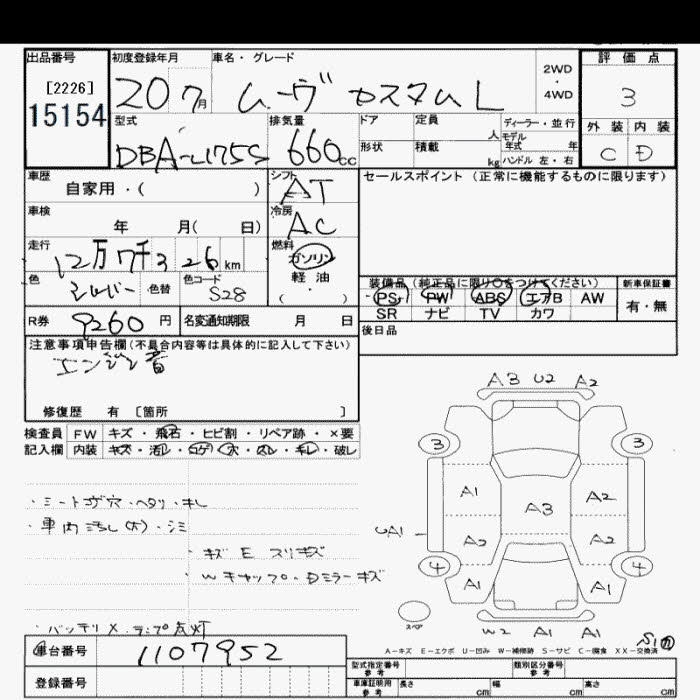 出品番号 初度登録年月 車名・グレード 評価点
[2226]
15154
20 7月 ムーヴ カスタム L
2WD
・
4WD
3
型式 排気量 ドア 定員 ディーラー・並行
外装 内装
DBA-L175S 660cc
人 モデル年式 年
形状 積載 kg ハンドル 左・右
C D
車歴 シフト セールスポイント (正常に機能するものに限ります)
自家用・( ) AT
車検 冷房
年 月( 日) AC
走行 燃料
12万7千326km ガソリン
色 色コード 軽油
シルバー 色替 S28 ・( )
装備品 (純正品に限り○をつけてください) 新車保証書
PS PW ABS エアB AW 有・無
SR ナビ TV カワ
R券 9260円 名変通知期限 月 日
後日品
注意事項申告欄(不具合内容等は具体的に記入して下さい)
エンジン音
修復歴 有 [箇所 ]
検査員 FW キズ・飛石・ヒビ割・リペア跡・×要
記入欄 内装 キズ・汚レ・コゲ・穴・スレ・キレ・破レ
A3 U2 A2
3 3
・シートコゲ穴・ヘタリ・キレ
A1 A3 A2
・車内汚レ(大)・シミ
UA1 A2 A2
・キズ E スリキズ
4 4
・Wキャップ・Dミラーキズ
A1 A1
スペア
・バッテリ×・ランプ点灯
W2 A1 A1
A－キズ E－エクボ U－凹み W－補修跡 S－サビ C－腐食 XX－交換済
車台番号 1107952
型式指定番号 参考 類別区分番号 参考
登録番号
車庫証明用 参考 長さ cm 幅 cm 高さ cm